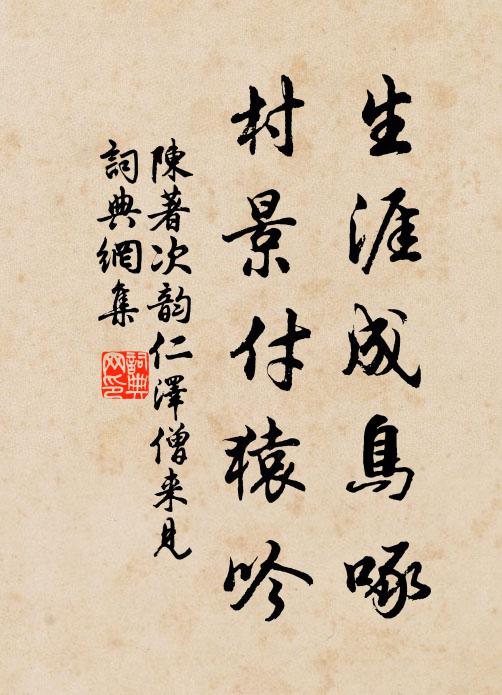 生涯成鳥啄
村景付猿吟
陳著次韵仁澤僧来見
詞典網集
詞典網印